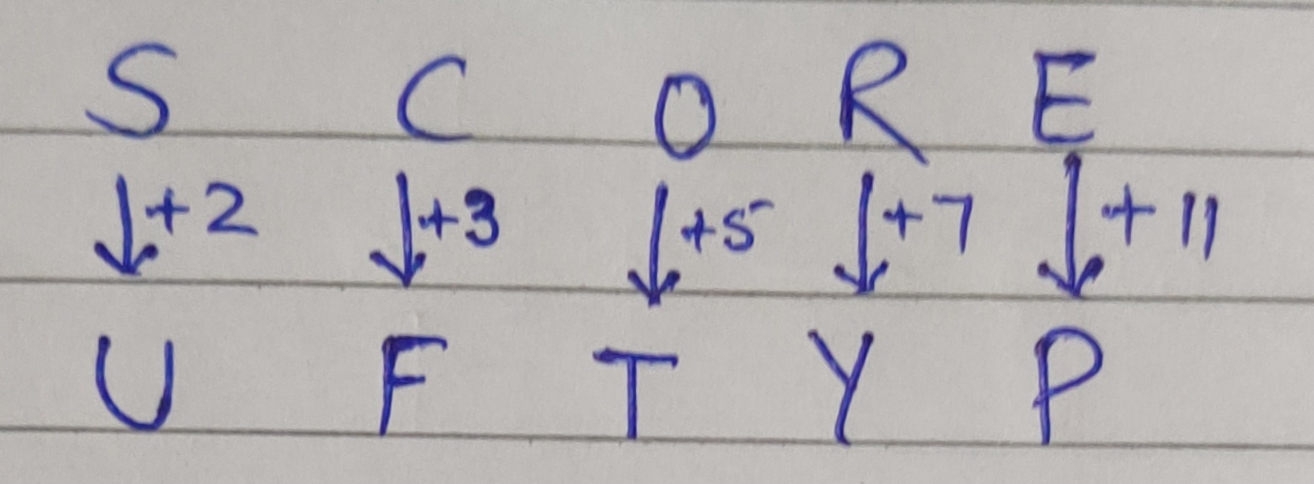 S C O R E
↓+2 ↓+3 ↓+5 ↓+7 ↓+11
U F T Y P